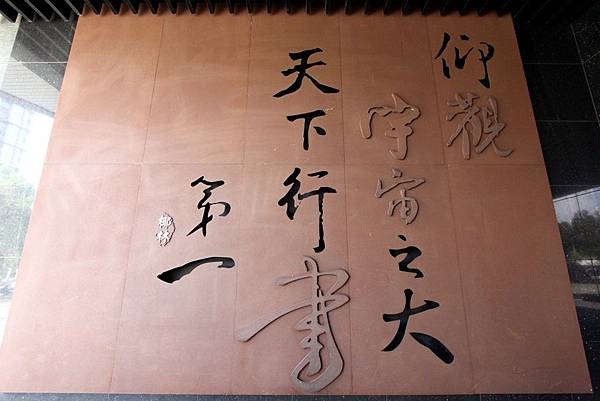 仰觀
宇宙之大
天下行書
第一